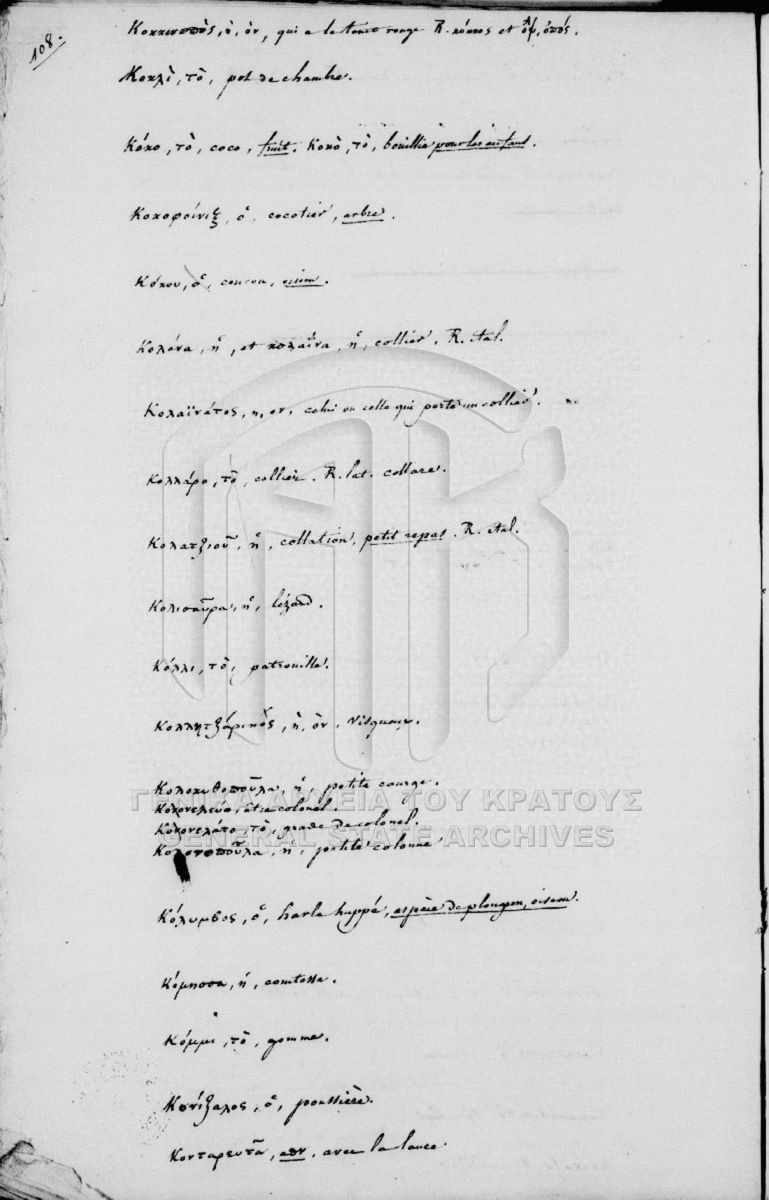 108.
Κοκκινοπὸς, ὸ, ὸν, qui a le teint rouge R. κόκκος et ὄψ, ὀπός.
Κοκλὶ, τὸ, pot de chambre.
Κόκο, τὸ, coco, fruit. Κοκὸ, τὸ, bouillie pour les enfans.
Κοκοφοίνιξ, ὁ, cocotier, arbre.
Κόκου, ὁ, coucou, oiseau.
Κολάνα, ἡ, et κολαΐνα, ἡ, collier. R. ital.
Κολαϊνάτος, η, ον, celui ou celle qui porte un collier.
Κολλάρο, τὸ, collier. R. lat. collare.
Κολατζιοῦ, ἡ, collation, petit repas. R. ital.
Κολισαῦρα, ἡ, lézard.
Κόλλι, τὸ, patrouille.
Κολλητζάρικος, ὴ, ὸν, visqueux.
Κολοκυθοποῦλα, ἡ, petite courge.
Κολονελεύω, être colonel.
Κολονελάτο, τὸ, grade de colonel.
Κολονοποῦλα, ἡ, petite colonne
Κόλυμβος, ὁ, harle huppé, espèce de plongeon, oiseau.
Κόμησσα, ἡ, comtesse.
Κόμμι, τὸ, gomme.
Κονίξαλος, ὁ, poussière.
Κονταρευτὰ, επιρ, avec la lance.
ΓΕΝΙΚΑ ΑΡΧΕΙΑ ΤΟΥ ΚΡΑΤΟΥΣ
GENERAL STATE ARCHIVES